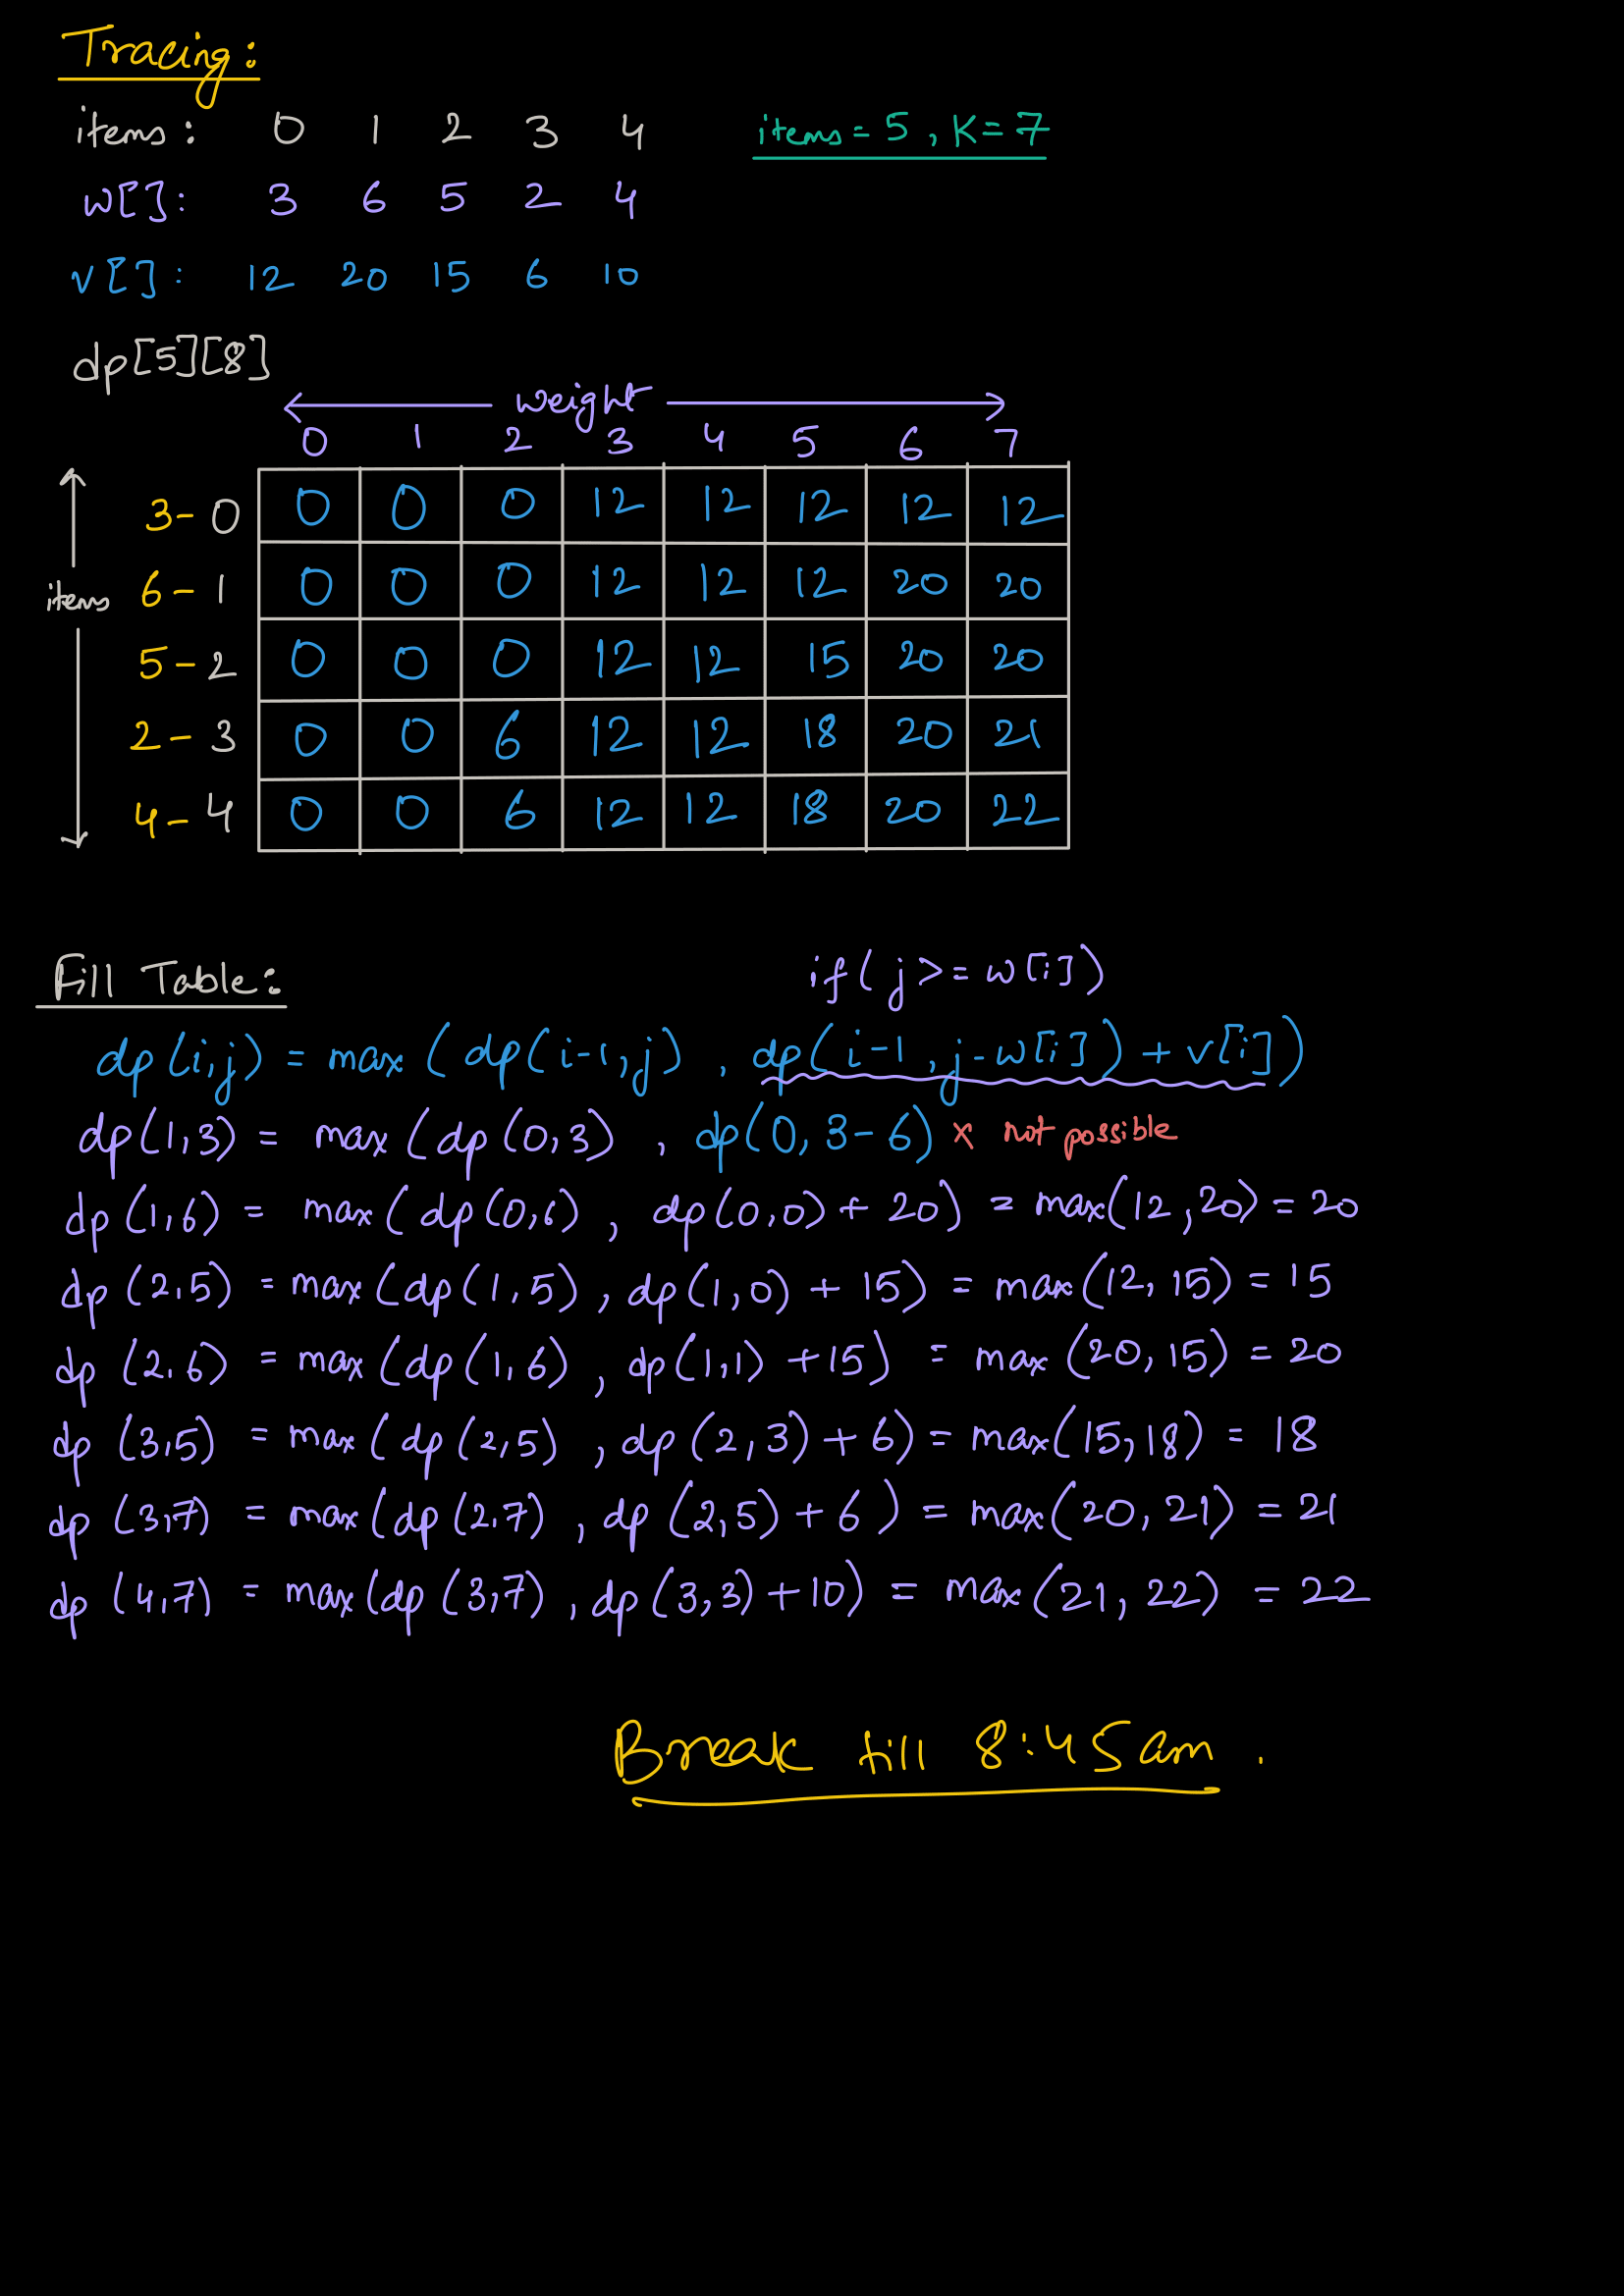 Tracing:
items: 0 1 2 3 4 items = 5, K = 7
w[]: 3 6 5 2 4
v[]: 12 20 15 6 10
dp[5][8]
weight
0 1 2 3 4 5 6 7
3 - 0 0 0 0 12 12 12 12 12
items 6 - 1 0 0 0 12 12 12 20 20
5 - 2 0 0 0 12 12 15 20 20
2 - 3 0 0 6 12 12 18 20 21
4 - 4 0 0 6 12 12 18 20 22
Fill Table: if(j >= w[i])
dp(i,j) = max(dp(i-1,j), dp(i-1, j-w[i]) + v[i])
dp(1,3) = max(dp(0,3), dp(0, 3-6) x not possible
dp(1,6) = max(dp(0,6), dp(0,0) + 20) = max(12,20) = 20
dp(2,5) = max(dp(1,5), dp(1,0) + 15) = max(12,15) = 15
dp(2,6) = max(dp(1,6), dp(1,1) + 15) = max(20,15) = 20
dp(3,5) = max(dp(2,5), dp(2,3) + 6) = max(15,18) = 18
dp(3,7) = max(dp(2,7), dp(2,5) + 6) = max(20,21) = 21
dp(4,7) = max(dp(3,7), dp(3,3) + 10) = max(21,22) = 22
Break till 8:45am.